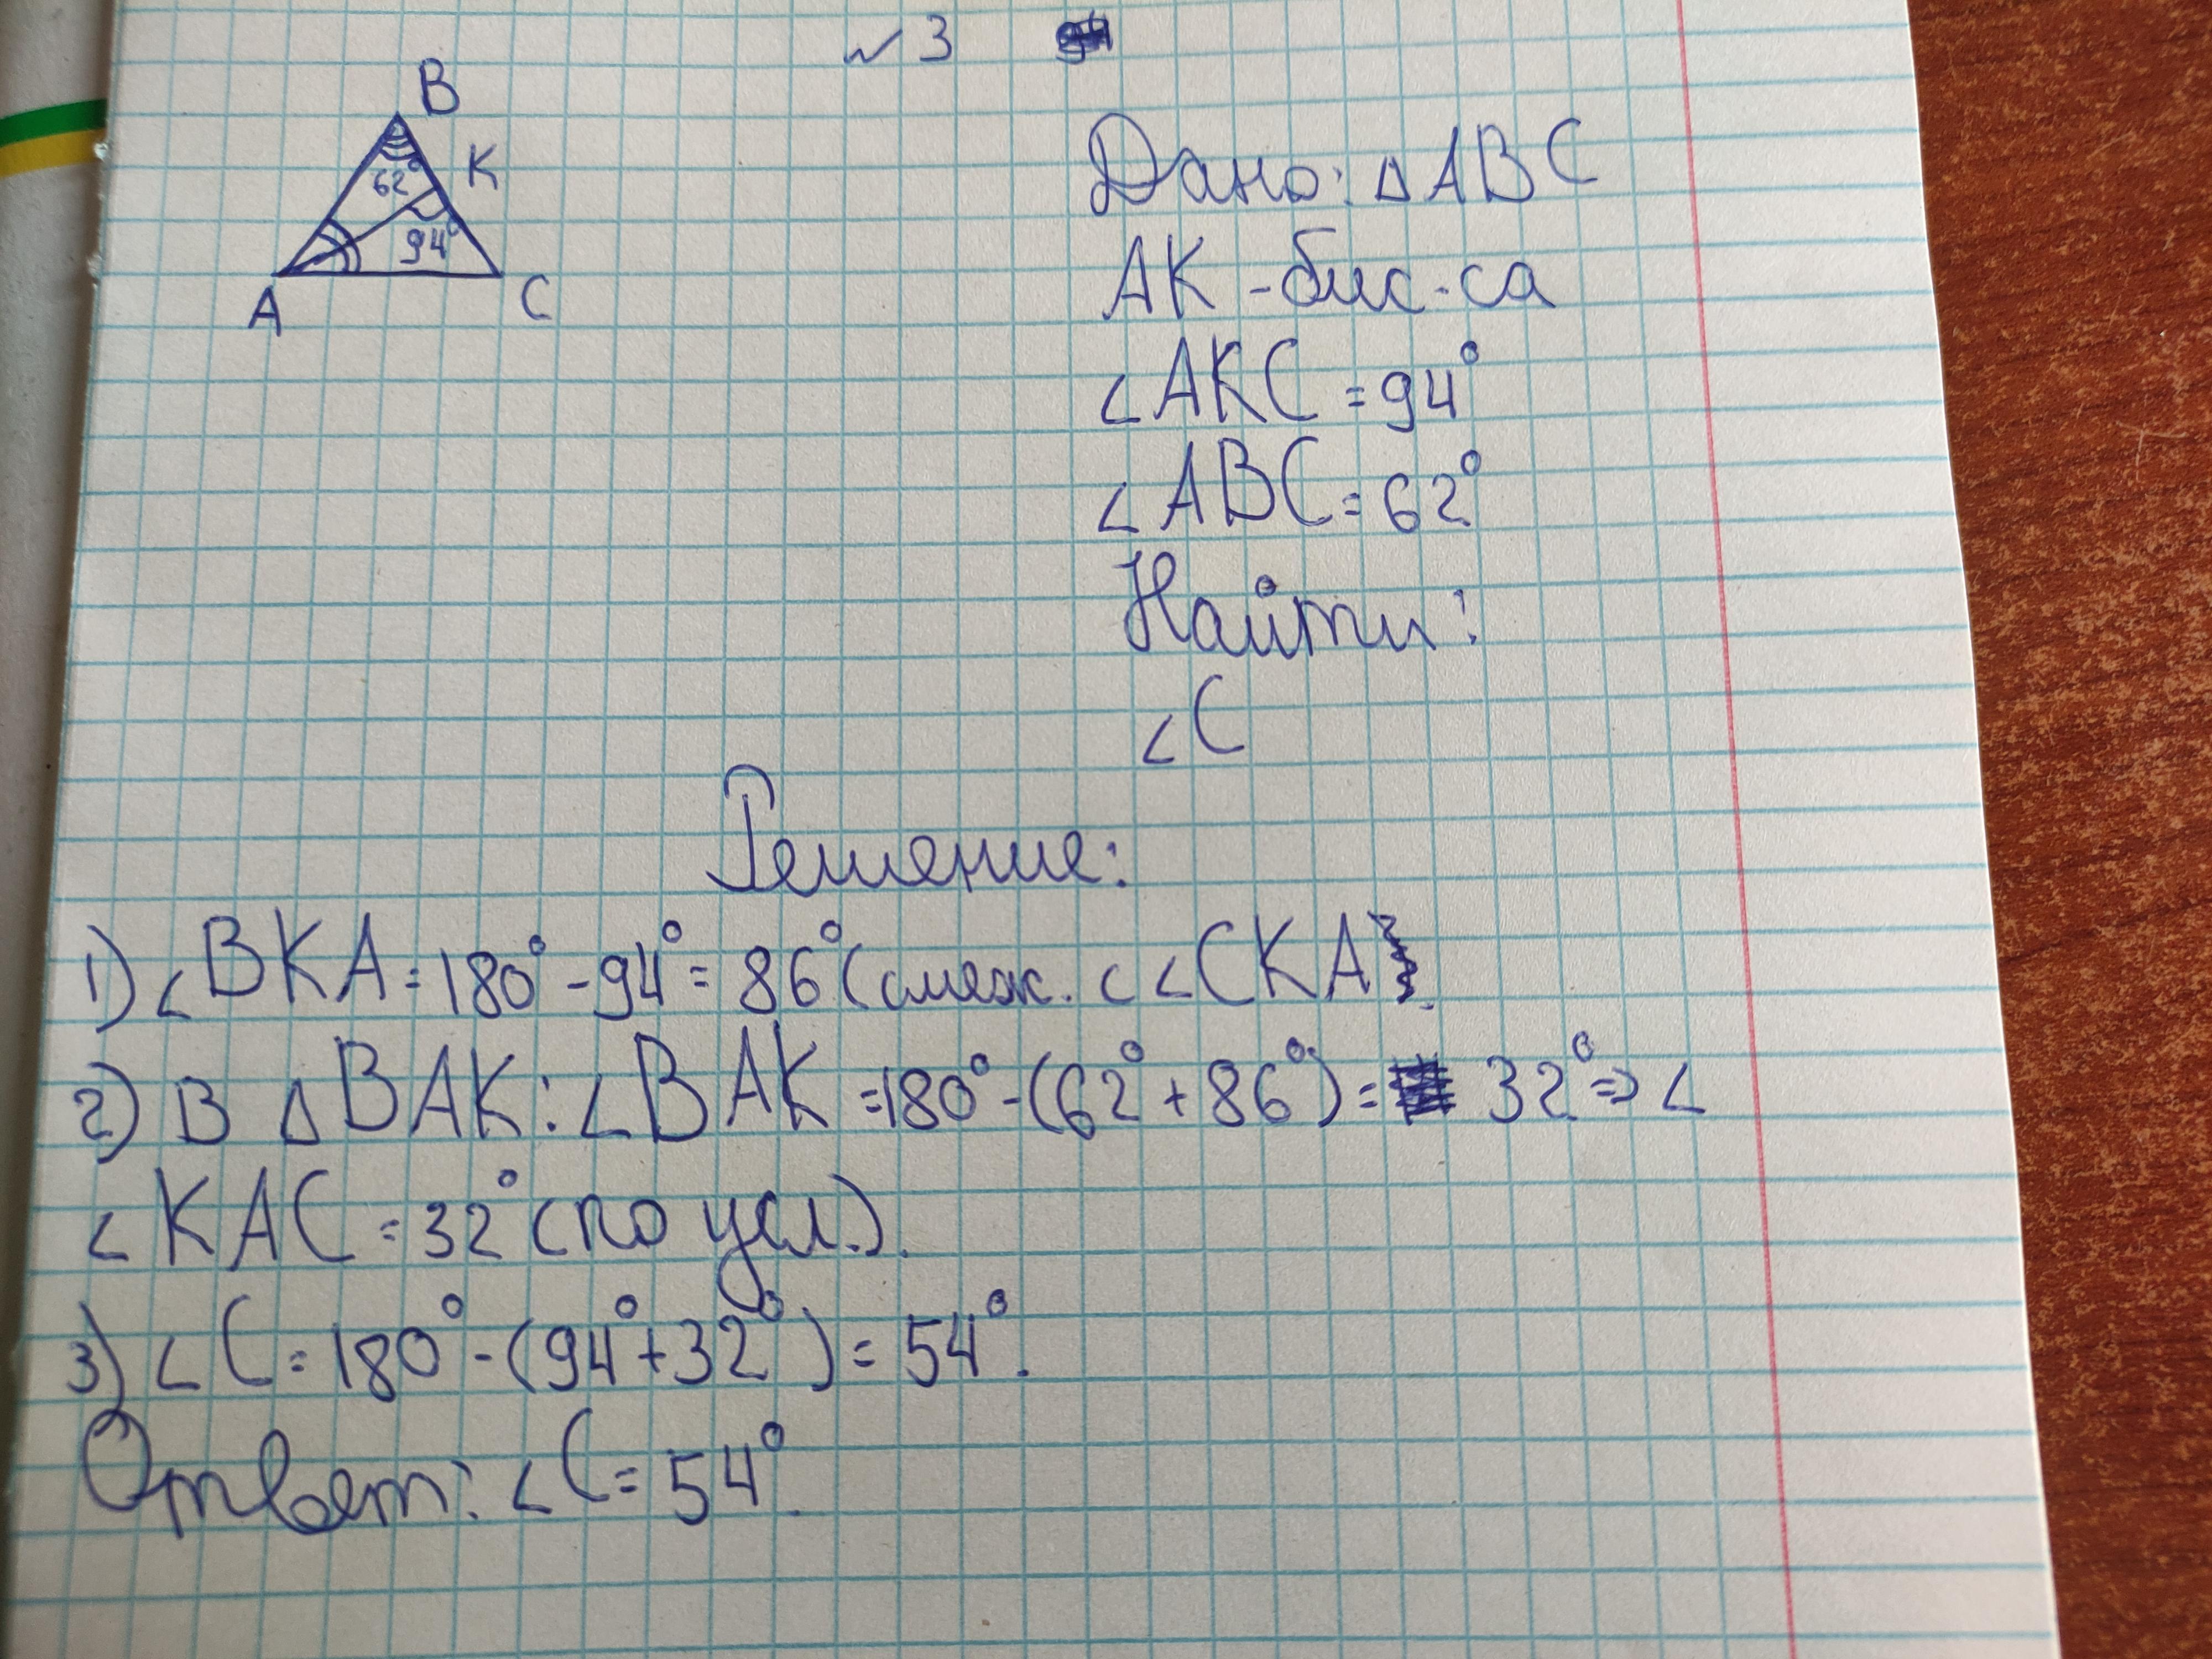 №3
B
62°
K
94°
A
C
Дано: △ABC
AK - бис-са
∠AKC = 94°
∠ABC = 62°
Найти:
∠C
Решение:
1) ∠BKA = 180° - 94° = 86° (смеж. с ∠CKA).
2) В △BAK: ∠BAK = 180° - (62° + 86°) = 32° => ∠
∠KAC = 32° (по усл.).
3) ∠C = 180° - (94° + 32°) = 54°.
Ответ: ∠C = 54°.